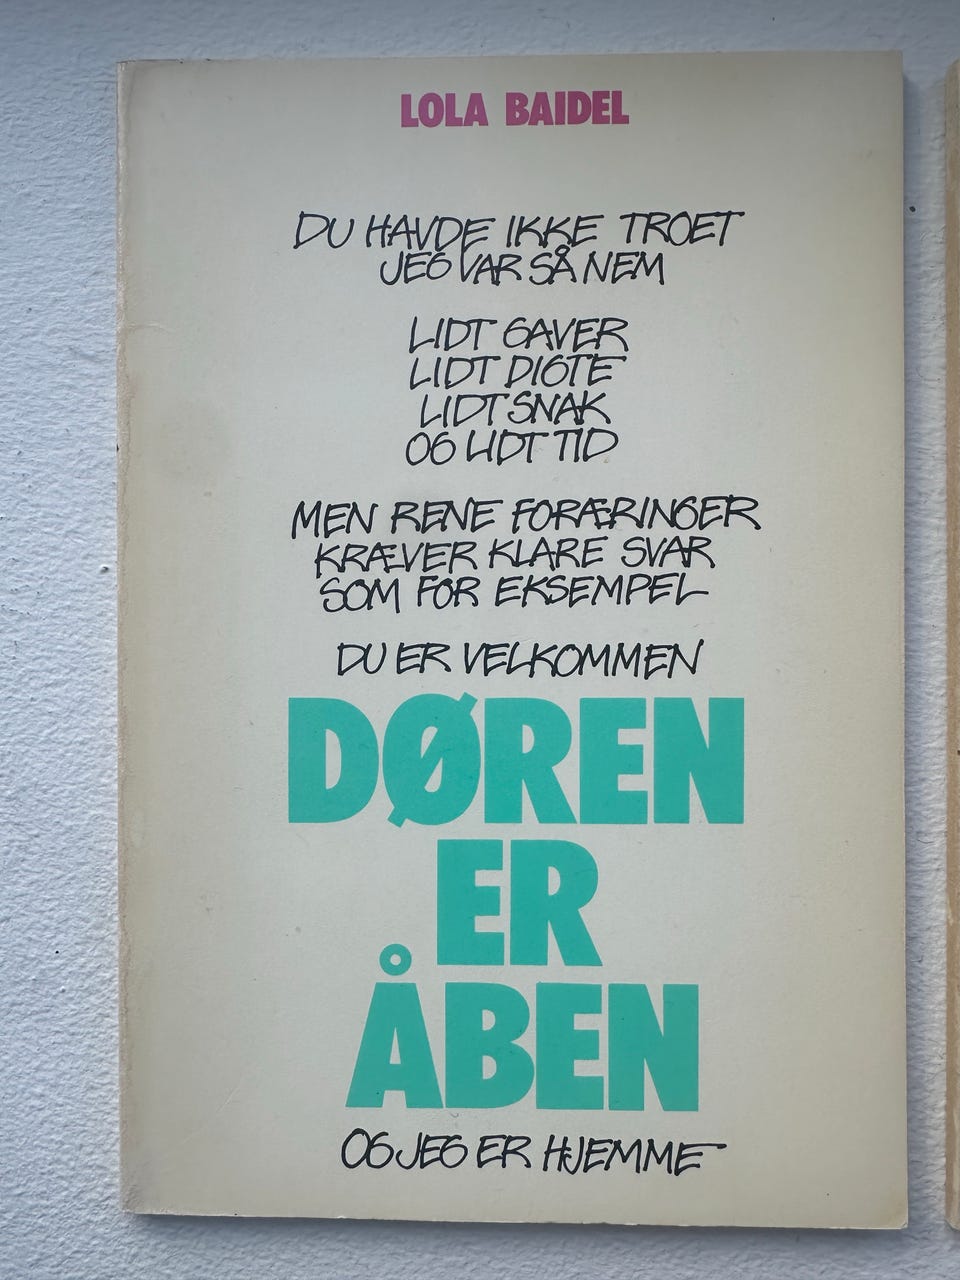 LOLA BAIDEL
DU HAVDE IKKE TROET
JEG VAR SÅ NEM
LIDT GAVER
LIDT DIGTE
LIDT SNAK
OG LIDT TID
MEN RENE FORÆRINGER
KRÆVER KLARE SVAR
SOM FOR EKSEMPEL
DU ER VELKOMMEN
DØREN
ER
ÅBEN
OG JEG ER HJEMME